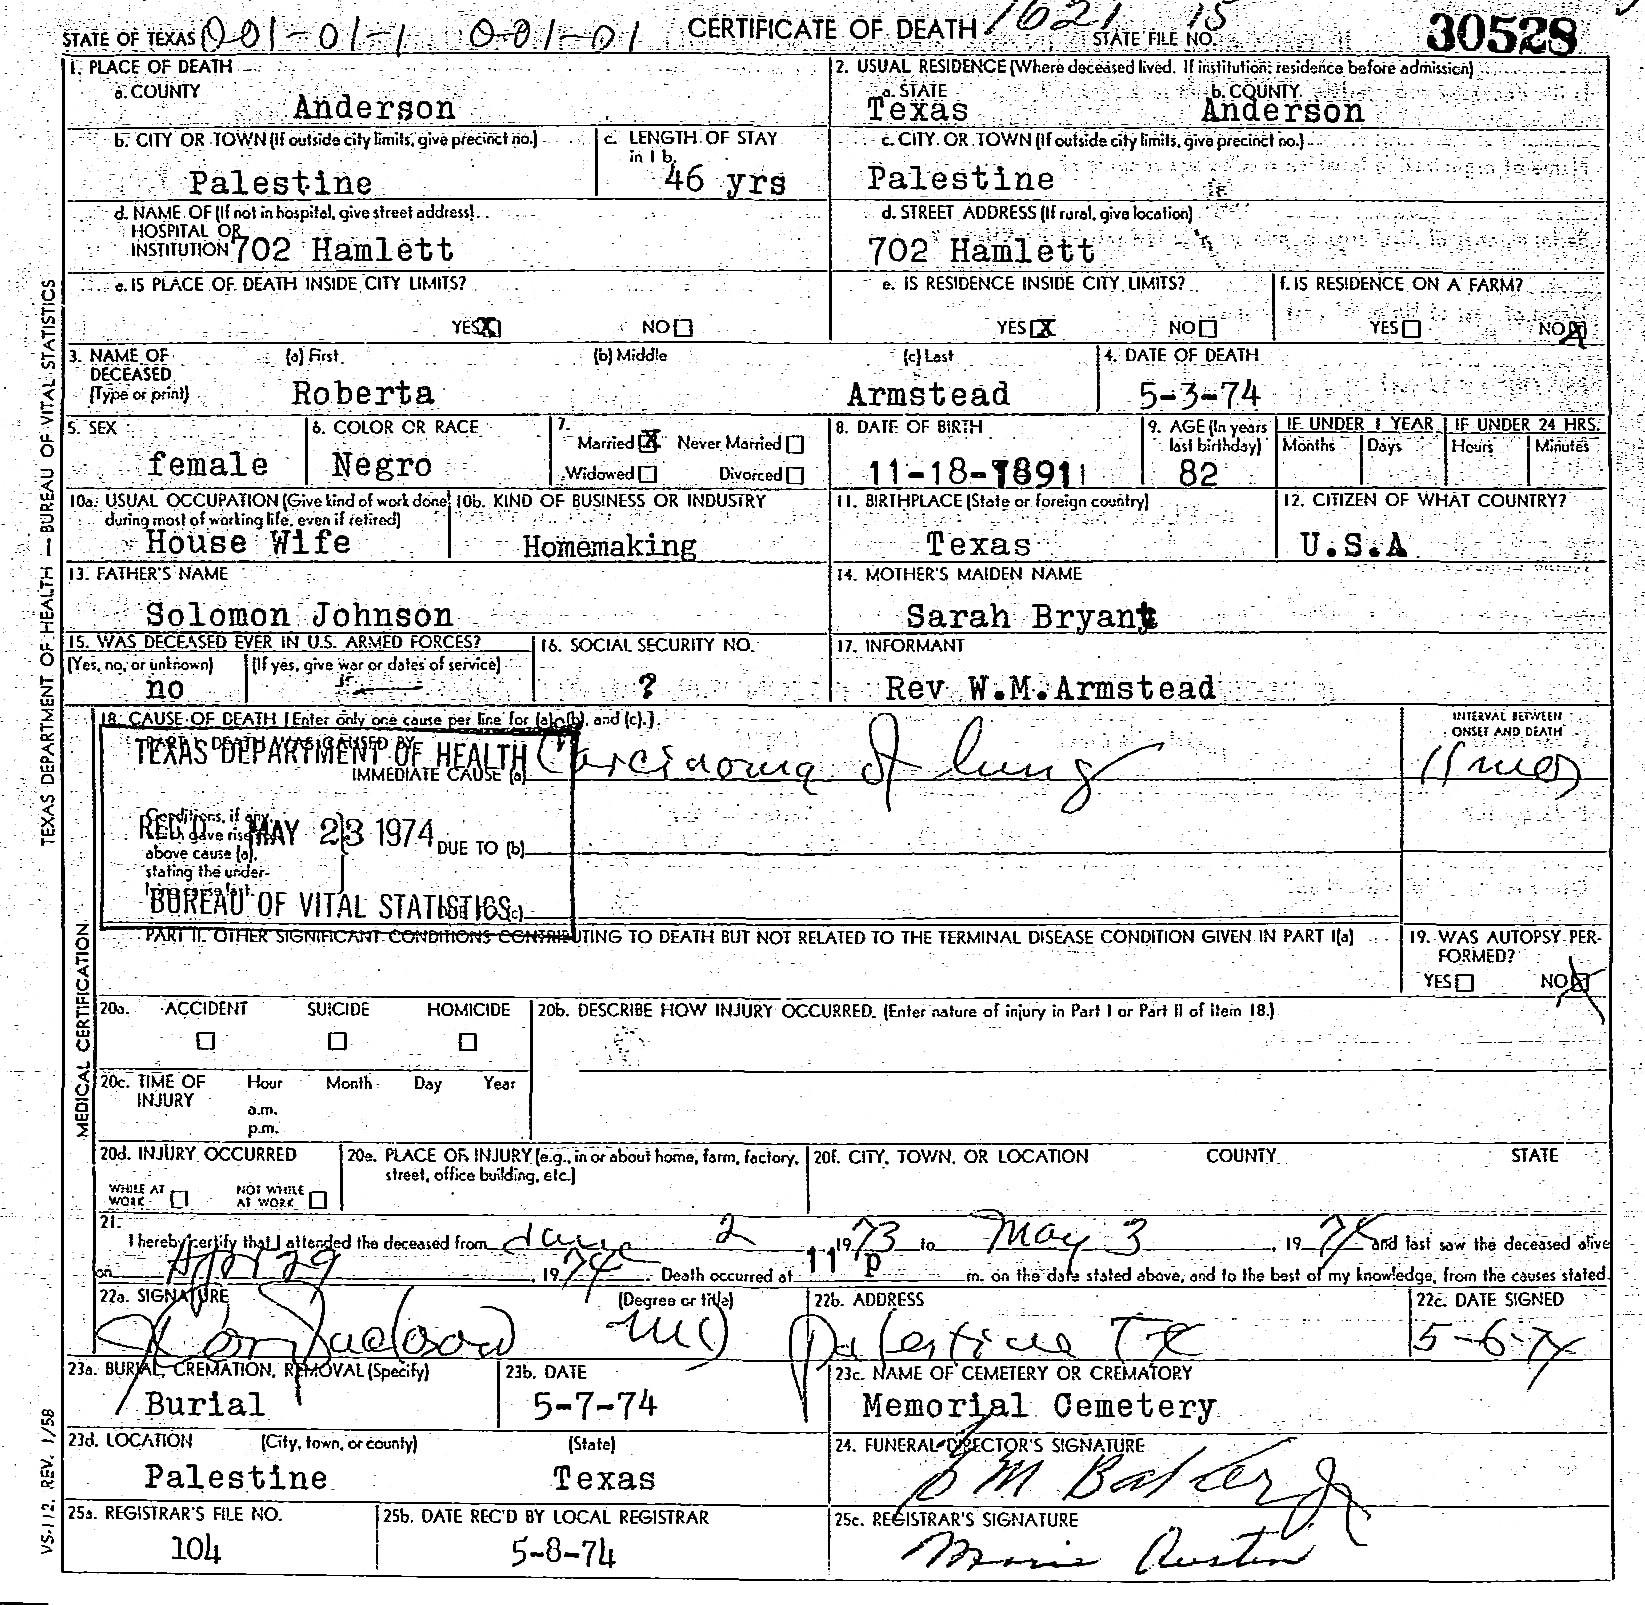 STATE OF TEXAS 001-01-1 001-01 CERTIFICATE OF DEATH 1621 15 STATE FILE NO. 30528
1. PLACE OF DEATH
a. COUNTY
Anderson
2. USUAL RESIDENCE (Where deceased lived. If institution: residence before admission)
a. STATE b. COUNTY
Texas Anderson
b. CITY OR TOWN (If outside city limits, give precinct no.)
Palestine
c. LENGTH OF STAY
in 1 b.
46 yrs
c. CITY OR TOWN (If outside city limits, give precinct no.)
Palestine
d. NAME OF (If not in hospital, give street address)
HOSPITAL OR
INSTITUTION 702 Hamlett
d. STREET ADDRESS (If rural, give location)
702 Hamlett
e. IS PLACE OF DEATH INSIDE CITY LIMITS?
YES X NO
e. IS RESIDENCE INSIDE CITY LIMITS?
YES X NO
f. IS RESIDENCE ON A FARM?
YES NO X
3. NAME OF DECEASED
(Type or print)
(a) First (b) Middle (c) Last
Roberta Armstead
4. DATE OF DEATH
5-3-74
5. SEX
female
6. COLOR OR RACE
Negro
7.
Married X Never Married
Widowed Divorced
8. DATE OF BIRTH
11-18-1891
9. AGE (In years last birthday)
82
IF UNDER 1 YEAR
Months Days
IF UNDER 24 HRS.
Hours Minutes
10a. USUAL OCCUPATION (Give kind of work done
during most of working life, even if retired)
House Wife
10b. KIND OF BUSINESS OR INDUSTRY
Homemaking
11. BIRTHPLACE (State or foreign country)
Texas
12. CITIZEN OF WHAT COUNTRY?
U.S.A
13. FATHER'S NAME
Solomon Johnson
14. MOTHER'S MAIDEN NAME
Sarah Bryant
15. WAS DECEASED EVER IN U.S. ARMED FORCES?
(Yes, no, or unknown) (If yes, give war or dates of service)
no
16. SOCIAL SECURITY NO.
?
17. INFORMANT
Rev W.M.Armstead
18. CAUSE OF DEATH [Enter only one cause per line for (a), (b), and (c).]
PART I. DEATH WAS CAUSED BY
IMMEDIATE CAUSE (a) Carcinoma of lung
INTERVAL BETWEEN
ONSET AND DEATH
11 mos
TEXAS DEPARTMENT OF HEALTH
REC'D MAY 23 1974
BUREAU OF VITAL STATISTICS
Conditions, if any,
which gave rise to
above cause (a),
stating the under-
lying cause last.
DUE TO (b)
(c)
PART II. OTHER SIGNIFICANT CONDITIONS CONTRIBUTING TO DEATH BUT NOT RELATED TO THE TERMINAL DISEASE CONDITION GIVEN IN PART I(a)
19. WAS AUTOPSY PER-
FORMED?
YES NO X
20a. ACCIDENT SUICIDE HOMICIDE
20b. DESCRIBE HOW INJURY OCCURRED. (Enter nature of injury in Part I or Part II of item 18.)
20c. TIME OF INJURY Hour Month Day Year
a.m.
p.m.
20d. INJURY OCCURRED
WHILE AT WORK NOT WHILE AT WORK
20e. PLACE OF INJURY (e.g., in or about home, farm, factory,
street, office building, etc.)
20f. CITY, TOWN, OR LOCATION COUNTY STATE
21.
I hereby certify that I attended the deceased from June 2 1973 to May 3, 1974 and last saw the deceased alive
on Apr 29, 1974. Death occurred at 11 p m. on the date stated above, and to the best of my knowledge, from the causes stated.
22a. SIGNATURE (Degree or title)
MD
22b. ADDRESS
Palestine Tx
22c. DATE SIGNED
5-6-74
23a. BURIAL, CREMATION, REMOVAL (Specify)
Burial
23b. DATE
5-7-74
23c. NAME OF CEMETERY OR CREMATORY
Memorial Cemetery
23d. LOCATION (City, town, or county) (State)
Palestine Texas
24. FUNERAL DIRECTOR'S SIGNATURE
25a. REGISTRAR'S FILE NO.
104
25b. DATE REC'D BY LOCAL REGISTRAR
5-8-74
25c. REGISTRAR'S SIGNATURE
Austin
TEXAS DEPARTMENT OF HEALTH — BUREAU OF VITAL STATISTICS
MEDICAL CERTIFICATION
VS-112. REV. 1/58